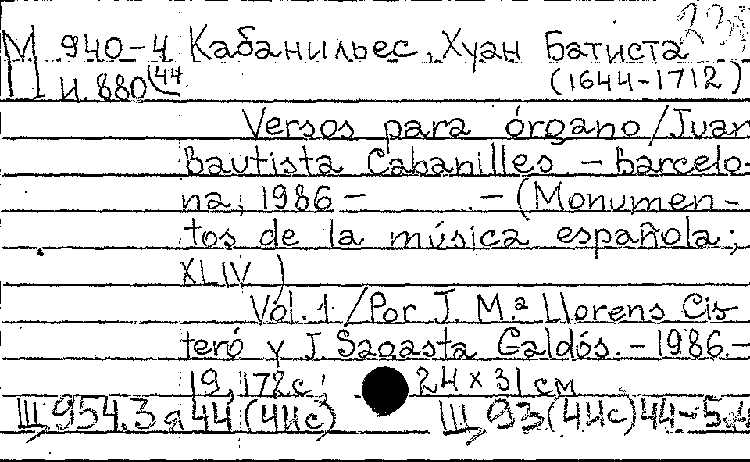 М 940-4 Кабанильес, Хуан Батиста 23
П и. 880(44 (1644-1712)
Versos para órgano / Juan
Bautista Cabanilles. - Barcelo-
na, 1986 - . - (Monumen-
tos de la música española;
XLIV)
Vol. 1. / Por J. M.ª Llorens Cis-
teró y J. Sagasta Galdós. - 1986. -
19, 172 с.; 24 × 31 см
Щ954.3я44(4Ис) Щ93(4Ис)44-5я4